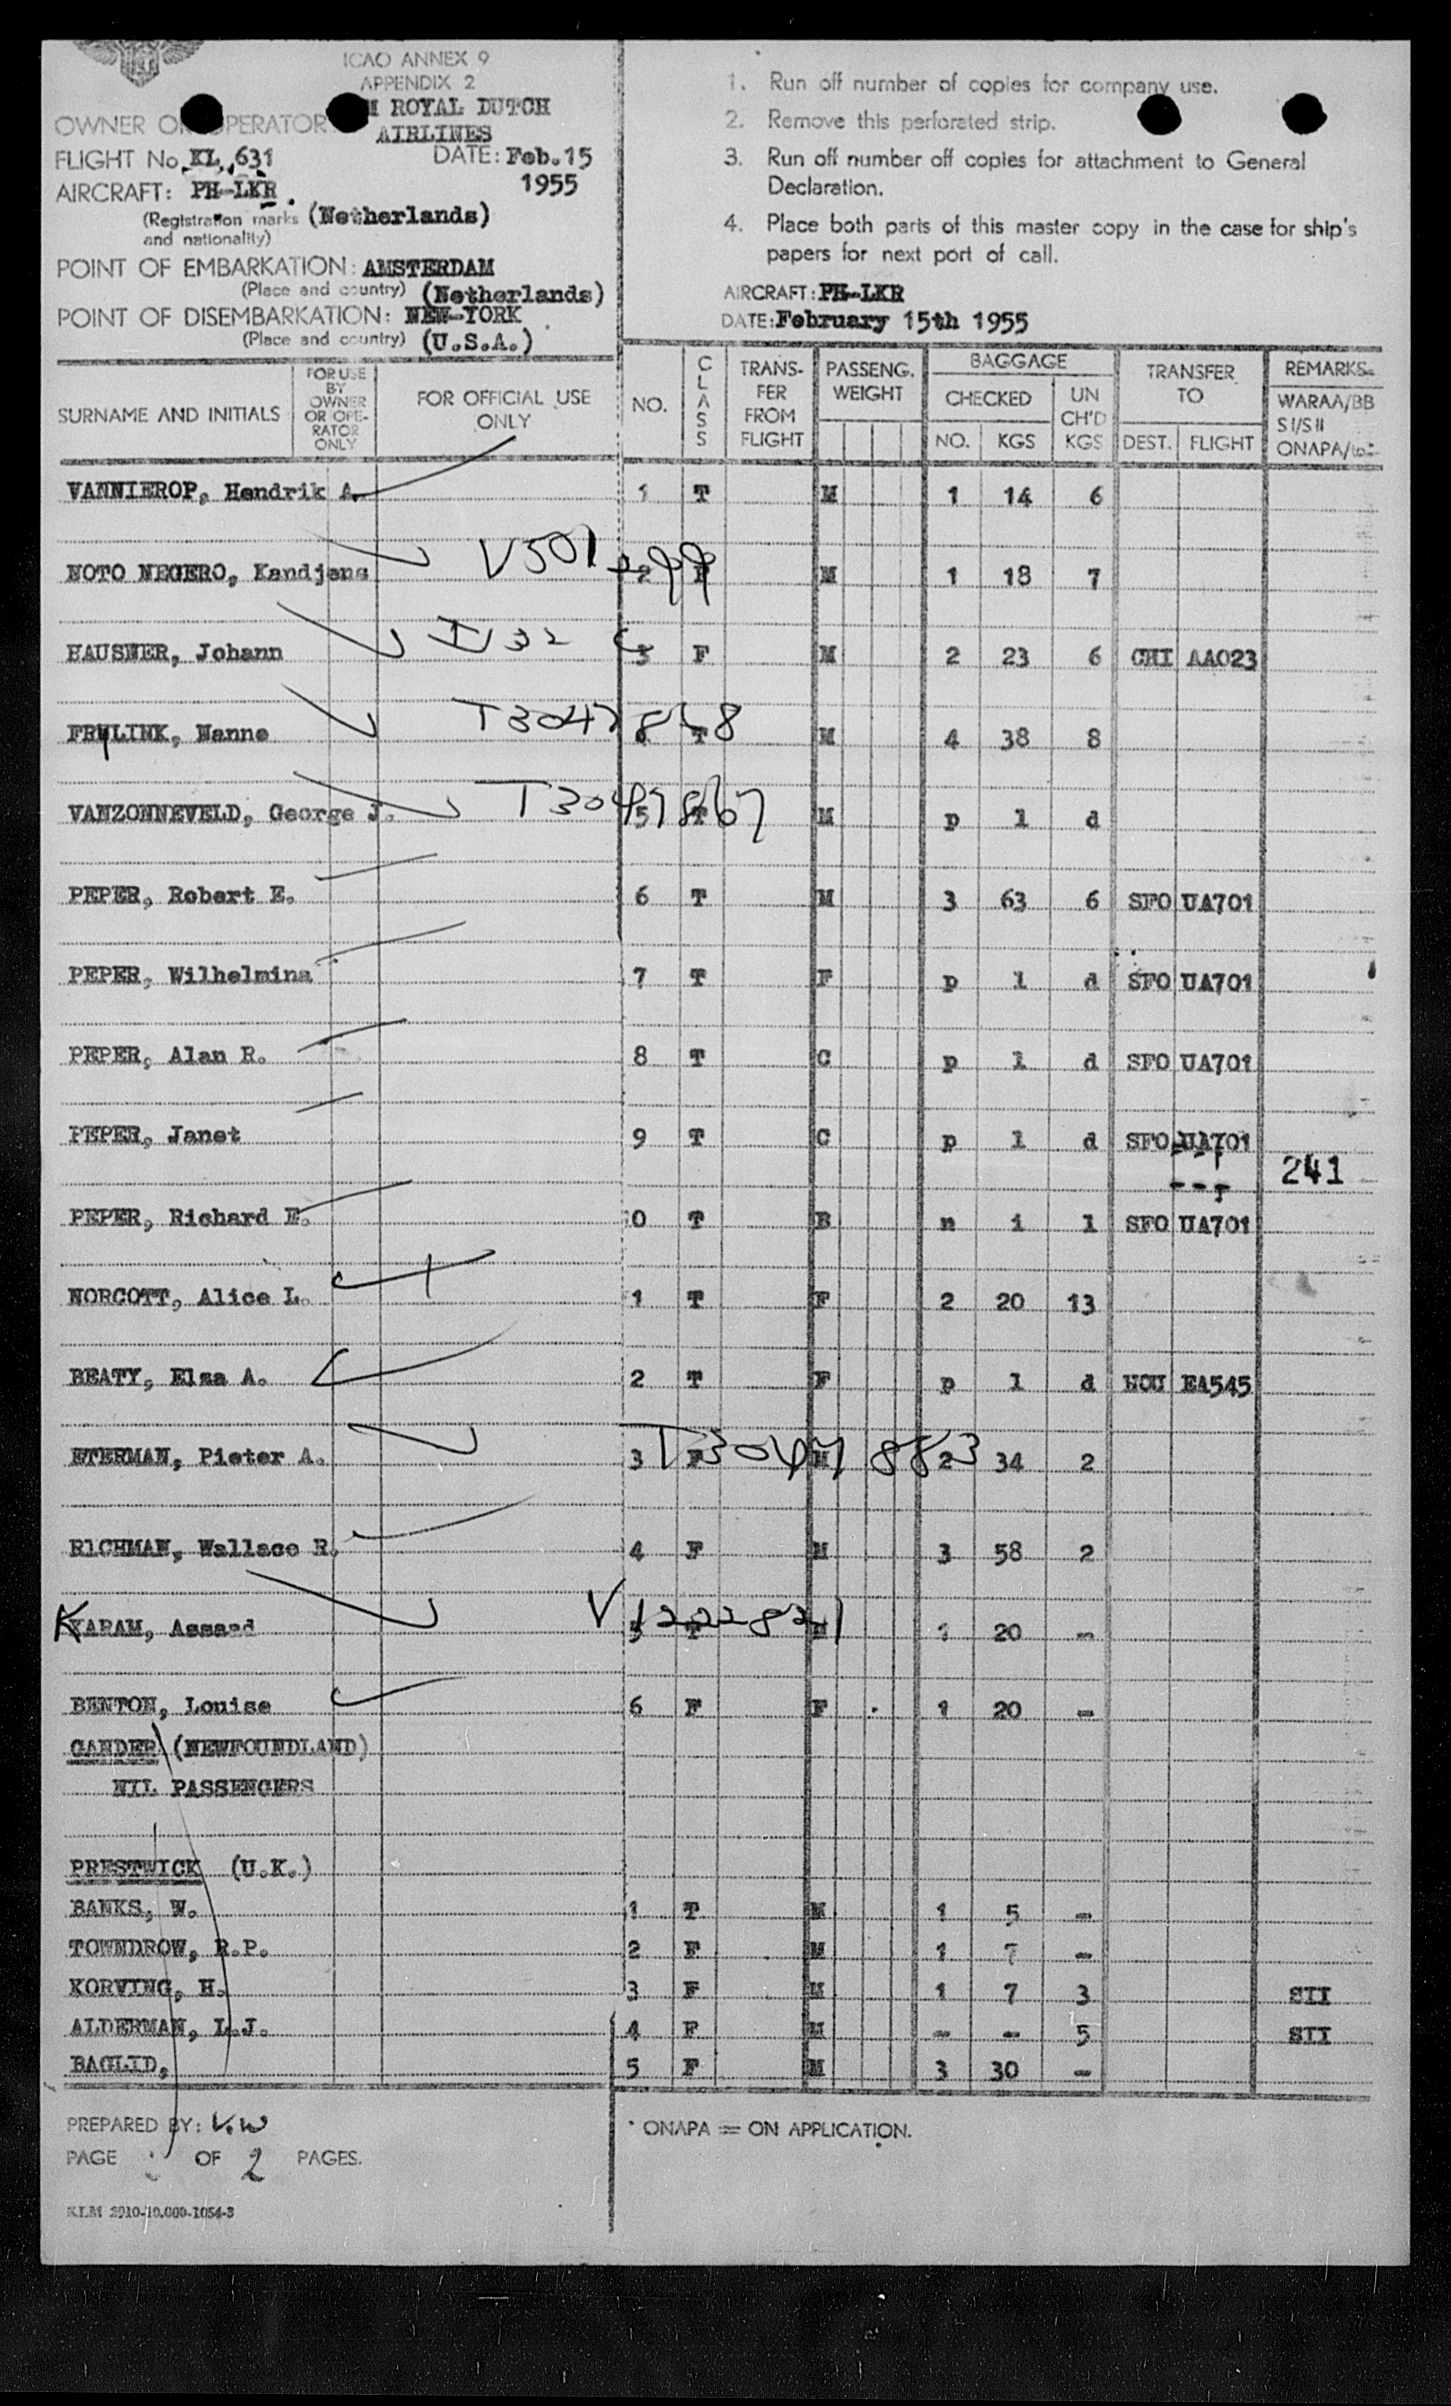 ICAO ANNEX 9
APPENDIX 2
OWNER OR OPERATOR M ROYAL DUTCH
AIRLINES
FLIGHT No. KL 631 DATE: Feb. 15
AIRCRAFT: PH-LKR. 1955
(Registration marks (Netherlands)
and nationality)
POINT OF EMBARKATION: AMSTERDAM
(Place and country) (Netherlands)
POINT OF DISEMBARKATION: NEW-YORK
(Place and country) (U.S.A.)
1. Run off number of copies for company use.
2. Remove this perforated strip.
3. Run off number off copies for attachment to General
Declaration.
4. Place both parts of this master copy in the case for ship's
papers for next port of call.
AIRCRAFT: PH-LKR
DATE: February 15th 1955
SURNAME AND INITIALS
FOR USE
BY
OWNER
OR OPE-
RATOR
ONLY
FOR OFFICIAL USE
ONLY
NO.
CLASS
TRANS-
FER
FROM
FLIGHT
PASSENG.
WEIGHT
BAGGAGE
CHECKED
NO. KGS
UN
CH'D
KGS
TRANSFER
TO
DEST. FLIGHT
REMARKS
WARAA/BB
SI/SII
ONAPA/
VANNIEROP, Hendrik A. 1 T M 1 14 6
NOTO NEGERO, Kandjens V501299 2 F M 1 18 7
HAUSNER, Johann 3 F M 2 23 6 CHI AA023
FRYLINK, Nanne T3047868 4 T M 4 38 8
VANZONNEVELD, George J. T3047867 5 T M p l d
PEPER, Robert E. 6 T M 3 63 6 SFO UA701
PEPER, Wilhelmina 7 T F p l d SFO UA701
PEPER, Alan R. 8 T C p l d SFO UA701
PEPER, Janet 9 T C p l d SFO UA701
241
PEPER, Richard E. 0 T B n i l SFO UA701
NORCOTT, Alice L. 1 T F 2 20 13
BEATY, Elsa A. 2 T F p l d HOU EA545
ETERMAN, Pieter A. T3047883 3 F M 2 34 2
RICHMAN, Wallace R. 4 F M 3 58 2
KARAM, Assaad V1222821 5 T M 1 20 -
BENTON, Louise 6 F F 1 20 -
GANDER (NEWFOUNDLAND)
NIL PASSENGERS
PRESTWICK (U.K.)
BANKS, W. 1 T M 1 5 -
TOWNDROW, R.P. 2 F M 1 7 -
KORVING, H. 3 F M 1 7 3 SII
ALDERMAN, L.J. 4 F M - - 5 SII
BAGLID, 5 F M 3 30 -
PREPARED BY: V.W
PAGE OF 2 PAGES.
KLM 2910-10.000-1054-3
* ONAPA = ON APPLICATION.